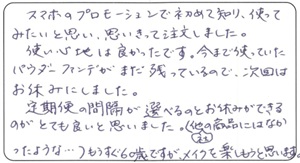 スマホのプロモーションで初めて知り、使って
みたいと思い、思いきって注文しました。
使い心地は良かったです。今まで使っていた
パウダーファンデがまだ残っているので、次回は
お休みにしました。
定期便の間隔が選べるのとお休みができる
のがとても良いと思いました。(他の商品にはなか
社
ったような…)もうすぐ60歳ですが、メイクを楽しもうと思います